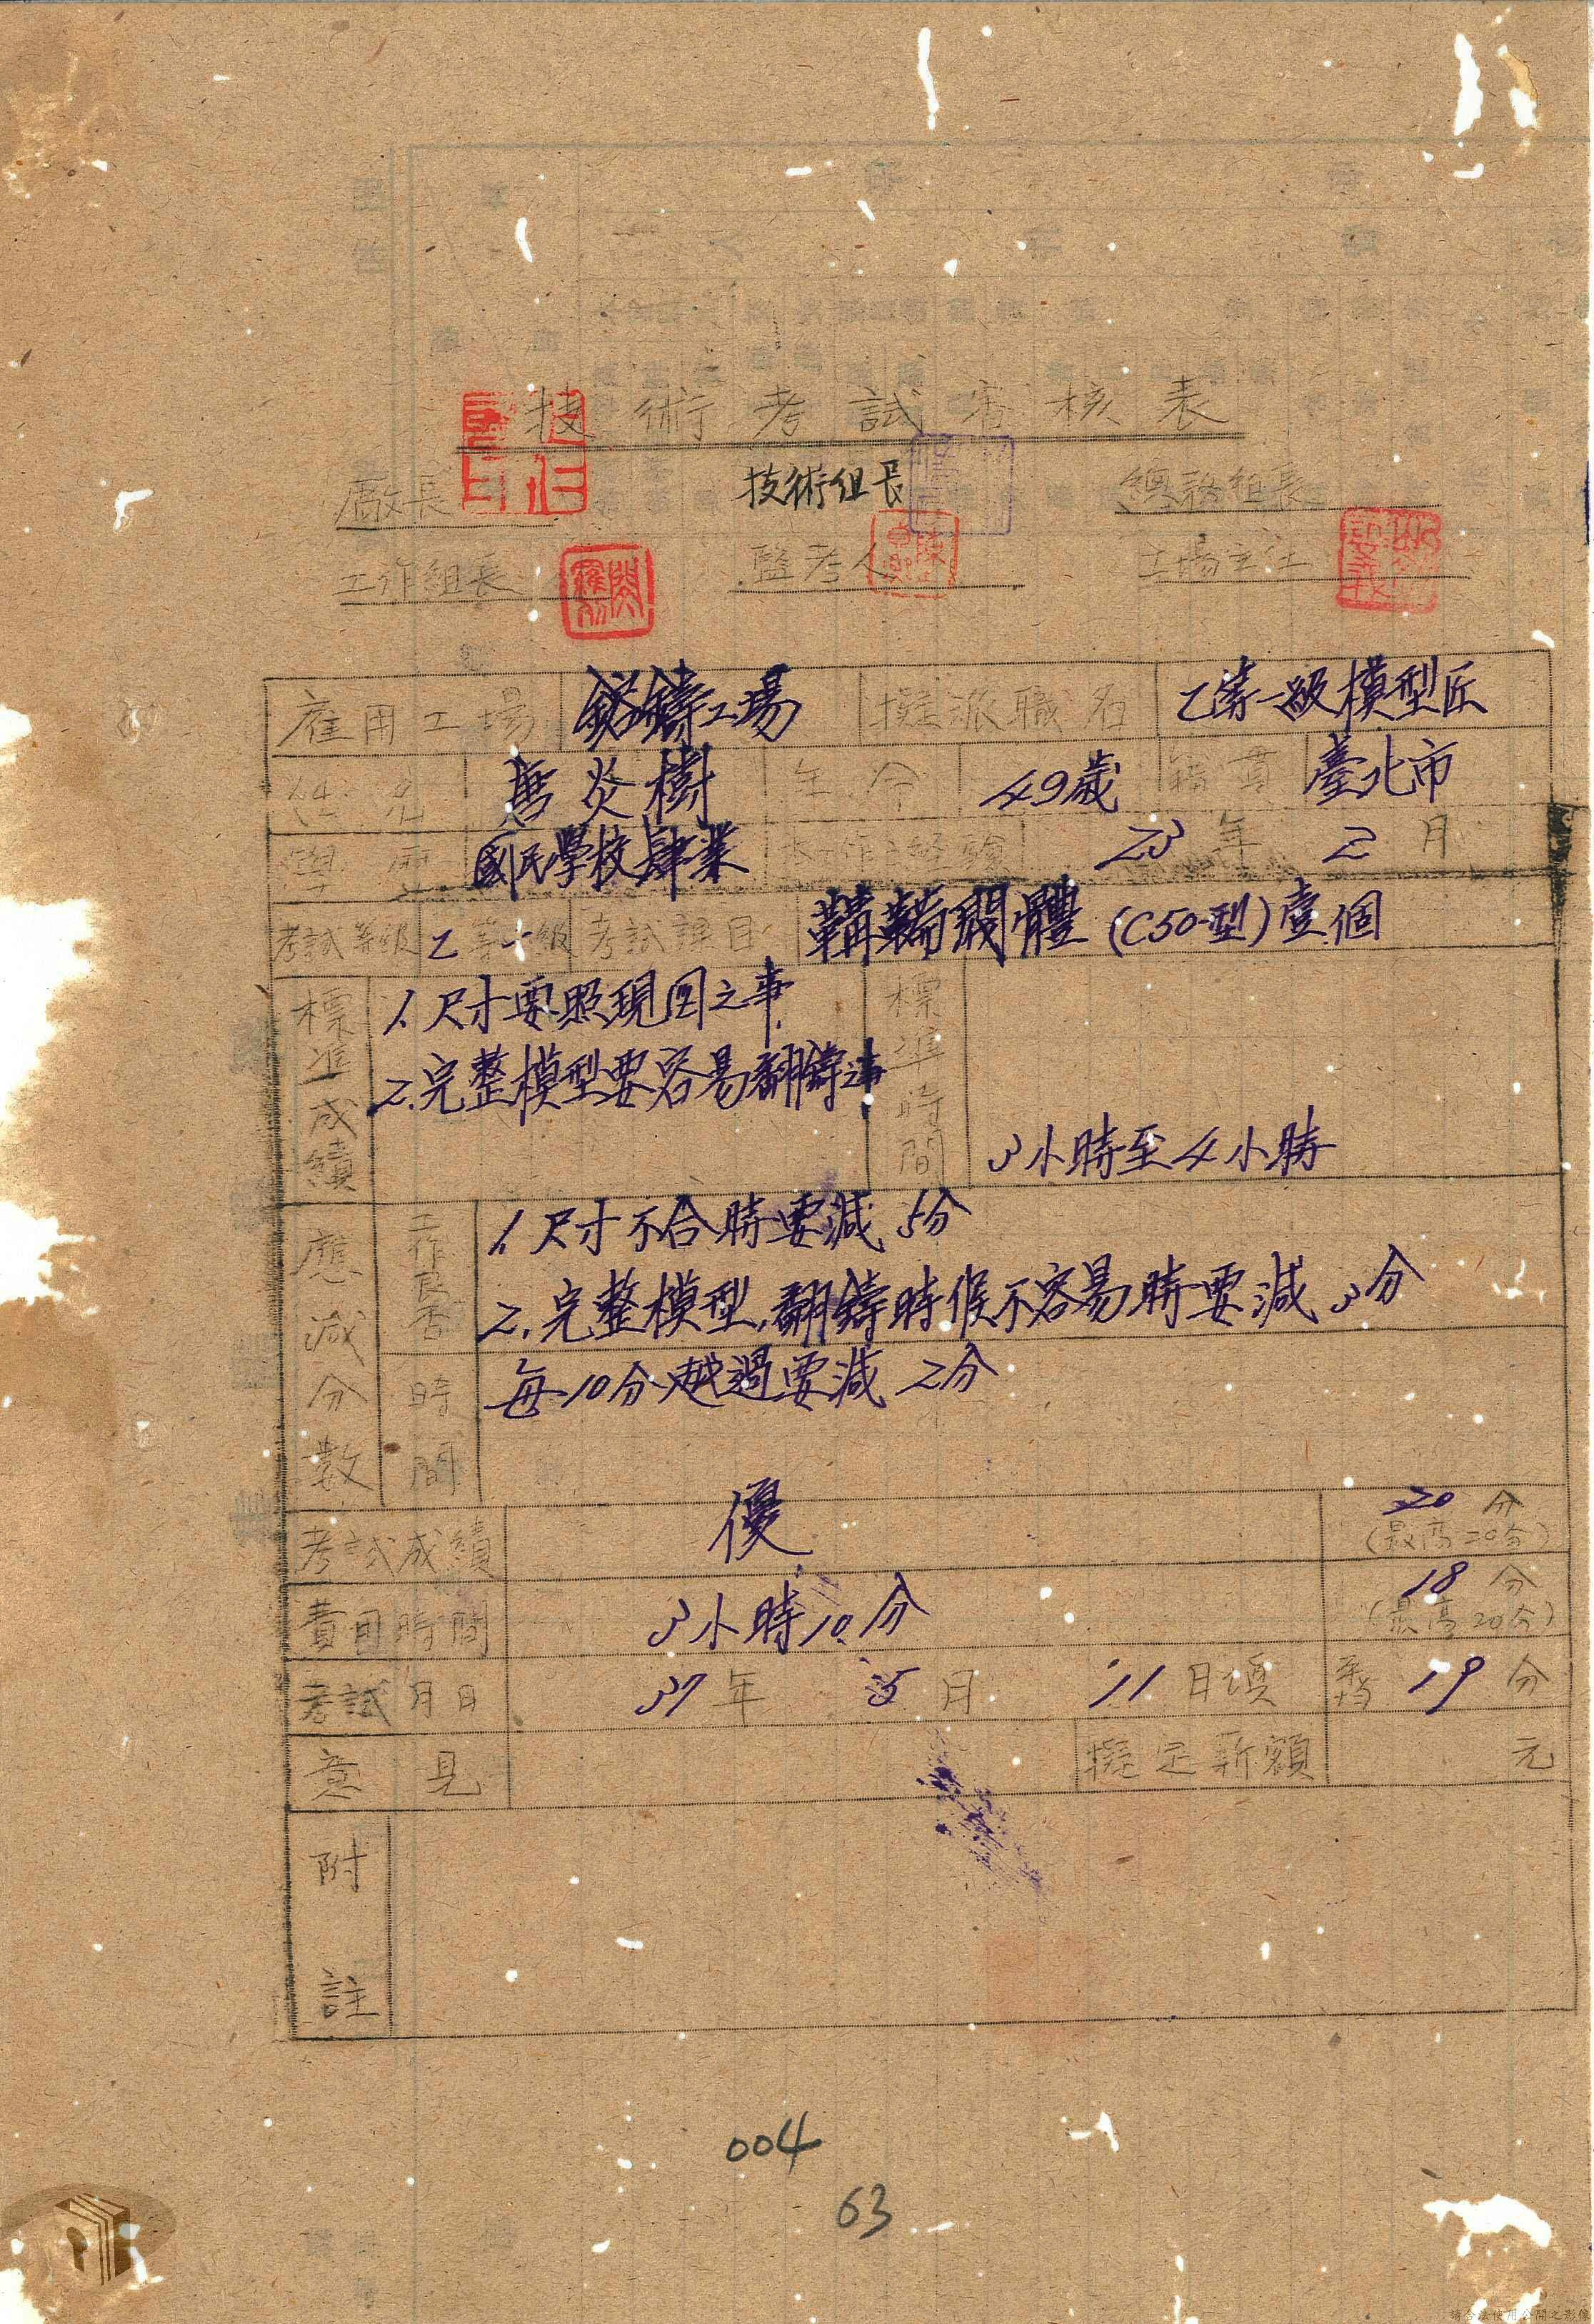 技術考試審核表
廠長 技術組長 總務組長
工作組長 監考人 工場主任
雇用工場 鎔鑄工場 擬派職名 乙等一級模型匠
姓名 唐炎樹 年令 49歲 籍貫 臺北市
學歷 國民學校肄業 工作經驗 23年2月
考試等級 乙等一級 考試課目 體(C50型)壹個
標準成績 1.尺寸要照現圖之事
2.完整模型要容易翻鑄事
標準時間 3小時至4小時
應減分數 工作良否 1.尺寸不合時要減5分
2.完整模型,翻鑄時候不容易時要減3分
時間 每10分越過要減2分
考試成績 優 20分
(最高20分)
費用時間 3小時10分 18分
(最高20分)
考試月日 37年5月11日填 平均 19分
意見 擬定薪額 元
附註
004
63